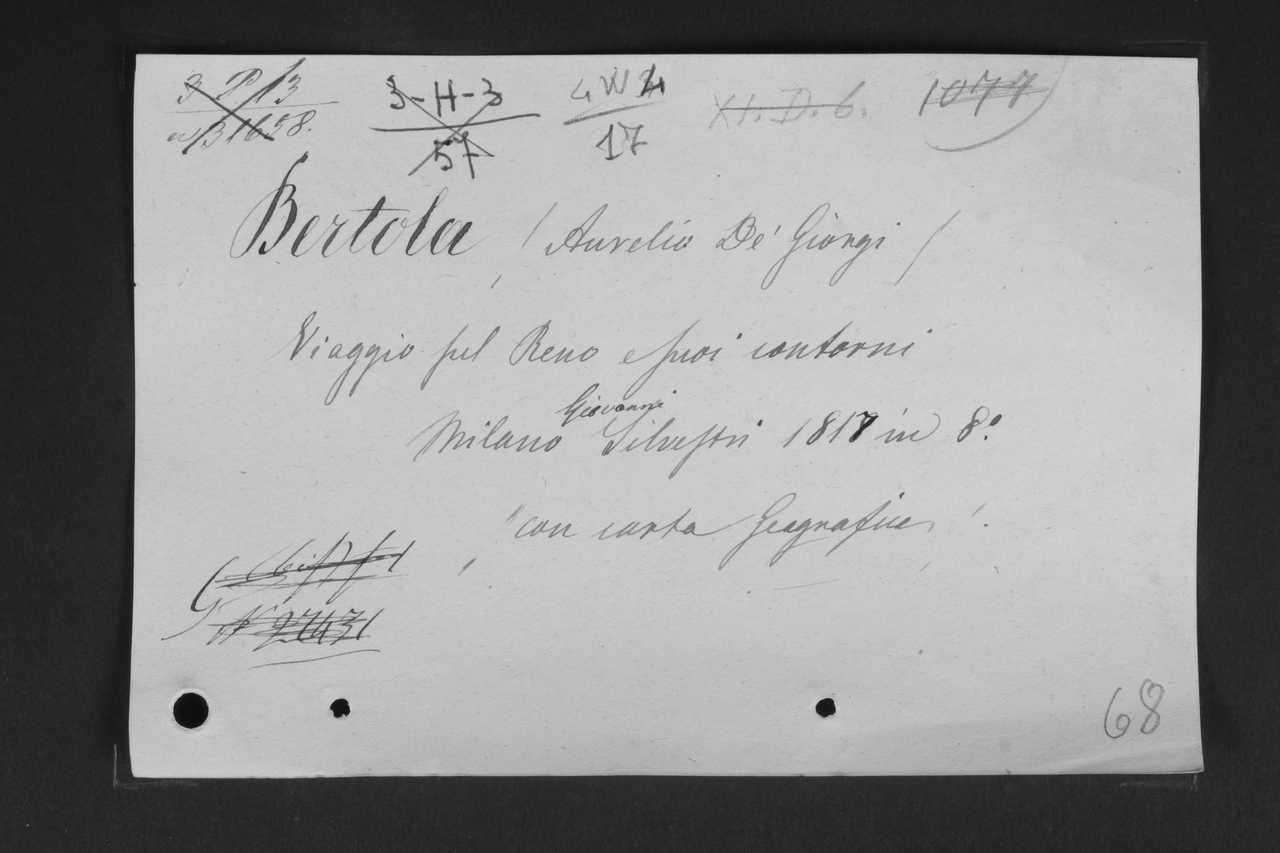 3 P 13 3-H-3 4 W 4 XI. D. 6. 1077
1658. 57 17
Bertola (Aurelio De' Giorgi)
Viaggio sul Reno e suoi contorni
Giovanni
Milano Silvestri 1817 in 8.°
"con carta Geografica".
N° 27431
68